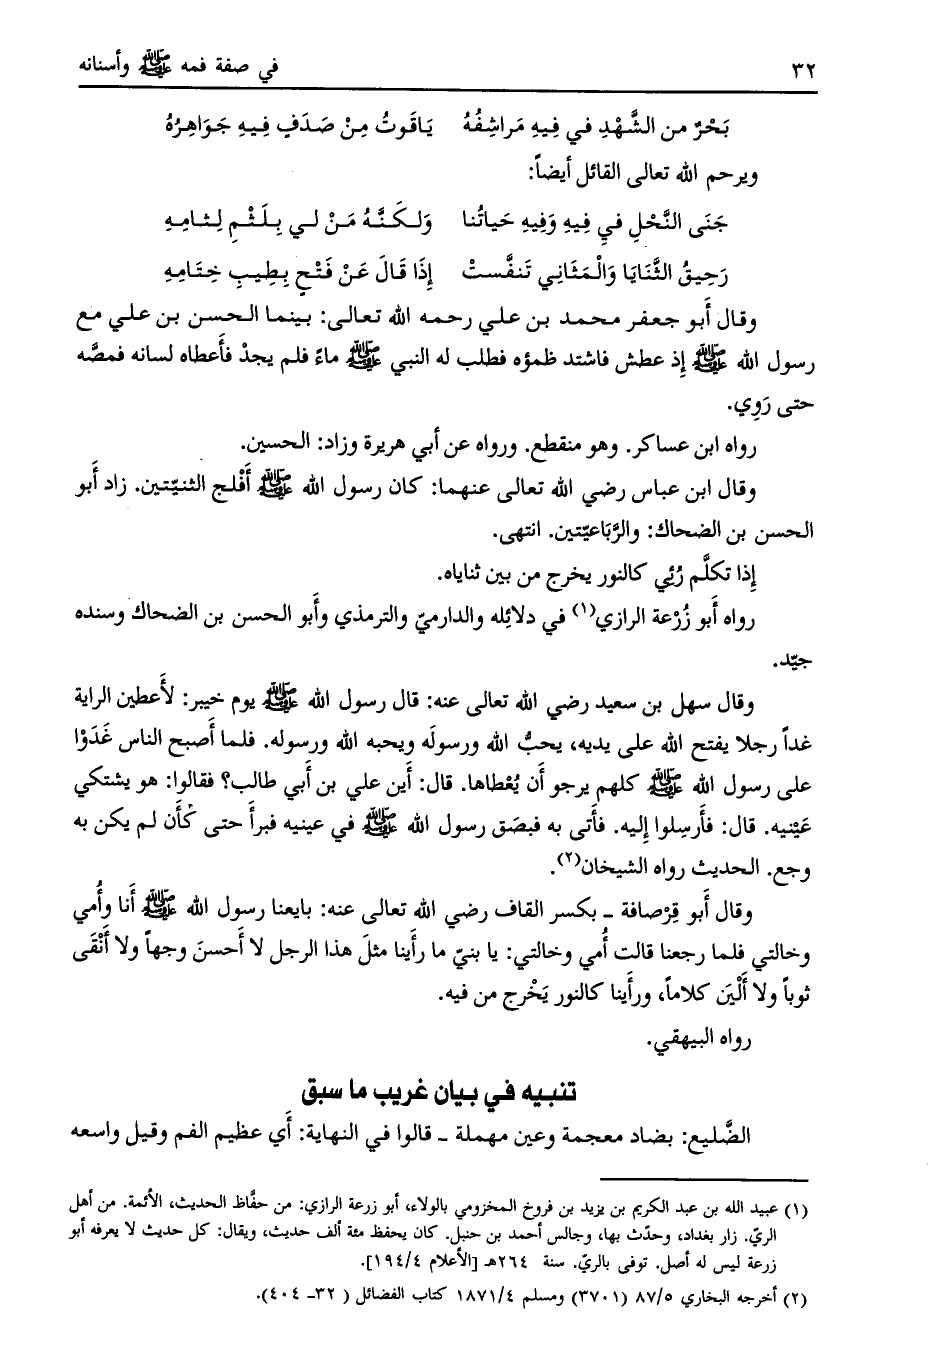 ٣٢ في صفة فمه ﷺ وأسنانه
بَحْرٌ من الشَّهْدِ في فِيهِ مَراشِفُهُ يَاقَوتُ مِنْ صَدَفٍ فِيهِ جَوَاهِرُهُ
ويرحم الله تعالى القائل أيضاً:
جَنَى النَّحْلِ في فِيهِ وَفِيهِ حَياتُنا وَلَكنَّهُ مَنْ لي بِلَثْمِ لِثامِهِ
رَحِيقُ الثَّنَايَا وَالْمَثَانِي تَنفَّستْ إِذَا قَالَ عَنْ فَتْحٍ بِطِيبِ خِتَامِهِ
وقال أَبو جعفر محمد بن علي رحمه الله تعالى: بينما الحسن بن علي مع
رسول الله ﷺ إِذ عطش فاشتد ظمؤه فطلب له النبي ﷺ ماءً فلم يجدْ فأَعطاه لسانه فمصَّه
حتى رَوِي.
رواه ابن عساكر. وهو منقطع. ورواه عن أَبي هريرة وزاد: الحسين.
وقال ابن عباس رضي الله تعالى عنهما: كان رسول الله ﷺ أَفْلج الثنيّتين. زاد أَبو
الحسن بن الضحاك: والرَّبَاعيّتين. انتهى.
إِذا تكلَّم رُئِي كالنور يخرج من بين ثناياه.
رواه أَبو زُرْعة الرازي(١) في دلائِله والدارميّ والترمذي وأَبو الحسن بن الضحاك وسنده
جيّد.
وقال سهل بن سعيد رضي الله تعالى عنه: قال رسول الله ﷺ يوم خيبر: لأَعطين الراية
غداً رجلا يفتح الله على يديه، يحبُّ الله ورسولَه ويحبه الله ورسوله. فلما أَصبح الناس غَدَوْا
على رسول الله ﷺ كلهم يرجو أَن يُعْطاها. قال: أَين علي بن أَبي طالب؟ فقالوا: هو يشتكي
عَيْنيه. قال: فأَرسِلوا إِليه. فأَتى به فبصَق رسول الله ﷺ في عينيه فبرأَ حتى كأَن لم يكن به
وجع. الحديث رواه الشيخان(٢).
وقال أَبو قِرْصافة ـ بكسر القاف رضي الله تعالى عنه: بايعنا رسول الله ﷺ أَنا وأُمي
وخالتي فلما رجعنا قالت أُمي وخالتي: يا بنيّ ما رأَينا مثلَ هذا الرجل لا أَحسنَ وجهاً ولا أَنْقَى
ثوباً ولا أَلْيَن كلاماً، ورأَينا كالنور يَخْرج من فيه.
رواه البيهقي.
تنبيه في بيان غريب ما سبق
الضَّليع: بضاد معجمة وعين مهملة ـ قالوا في النهاية: أَي عظيم الفم وقيل واسعه
(١) عبيد الله بن عبد الكريم بن يزيد بن فروخ المخزومي بالولاء، أبو زرعة الرازي: من حفَّاظ الحديث، الأئمة. من أهل
الريّ. زار بغداد، وحدّث بها، وجالس أحمد بن حنبل. كان يحفظ مئة ألف حديث، ويقال: كل حديث لا يعرفه أبو
زرعة ليس له أصل. توفى بالريّ. سنة ٢٦٤هـ [الأعلام ١٩٤/٤].
(٢) أخرجه البخاري ٨٧/٥ (٣٧٠١) ومسلم ١٨٧١/٤ كتاب الفضائل ( ٣٢ـ ٤٠٤).